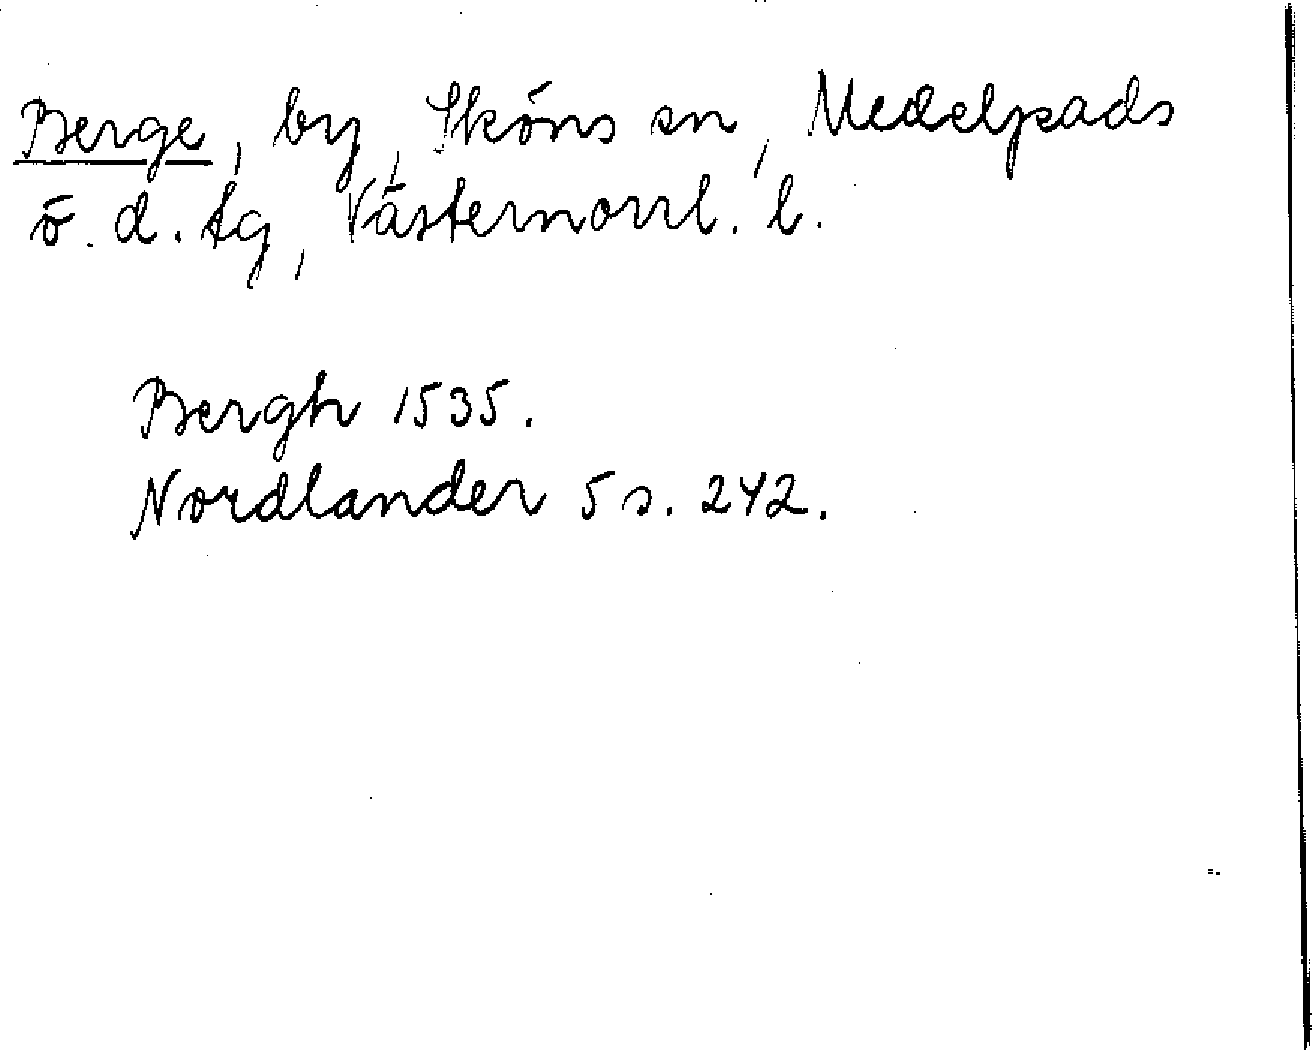 Berge, by, Sköns sn, Medelpads
ö. d. tg, Västernorrl. l.
Bergh 1535.
Nordlander 5 s. 242.